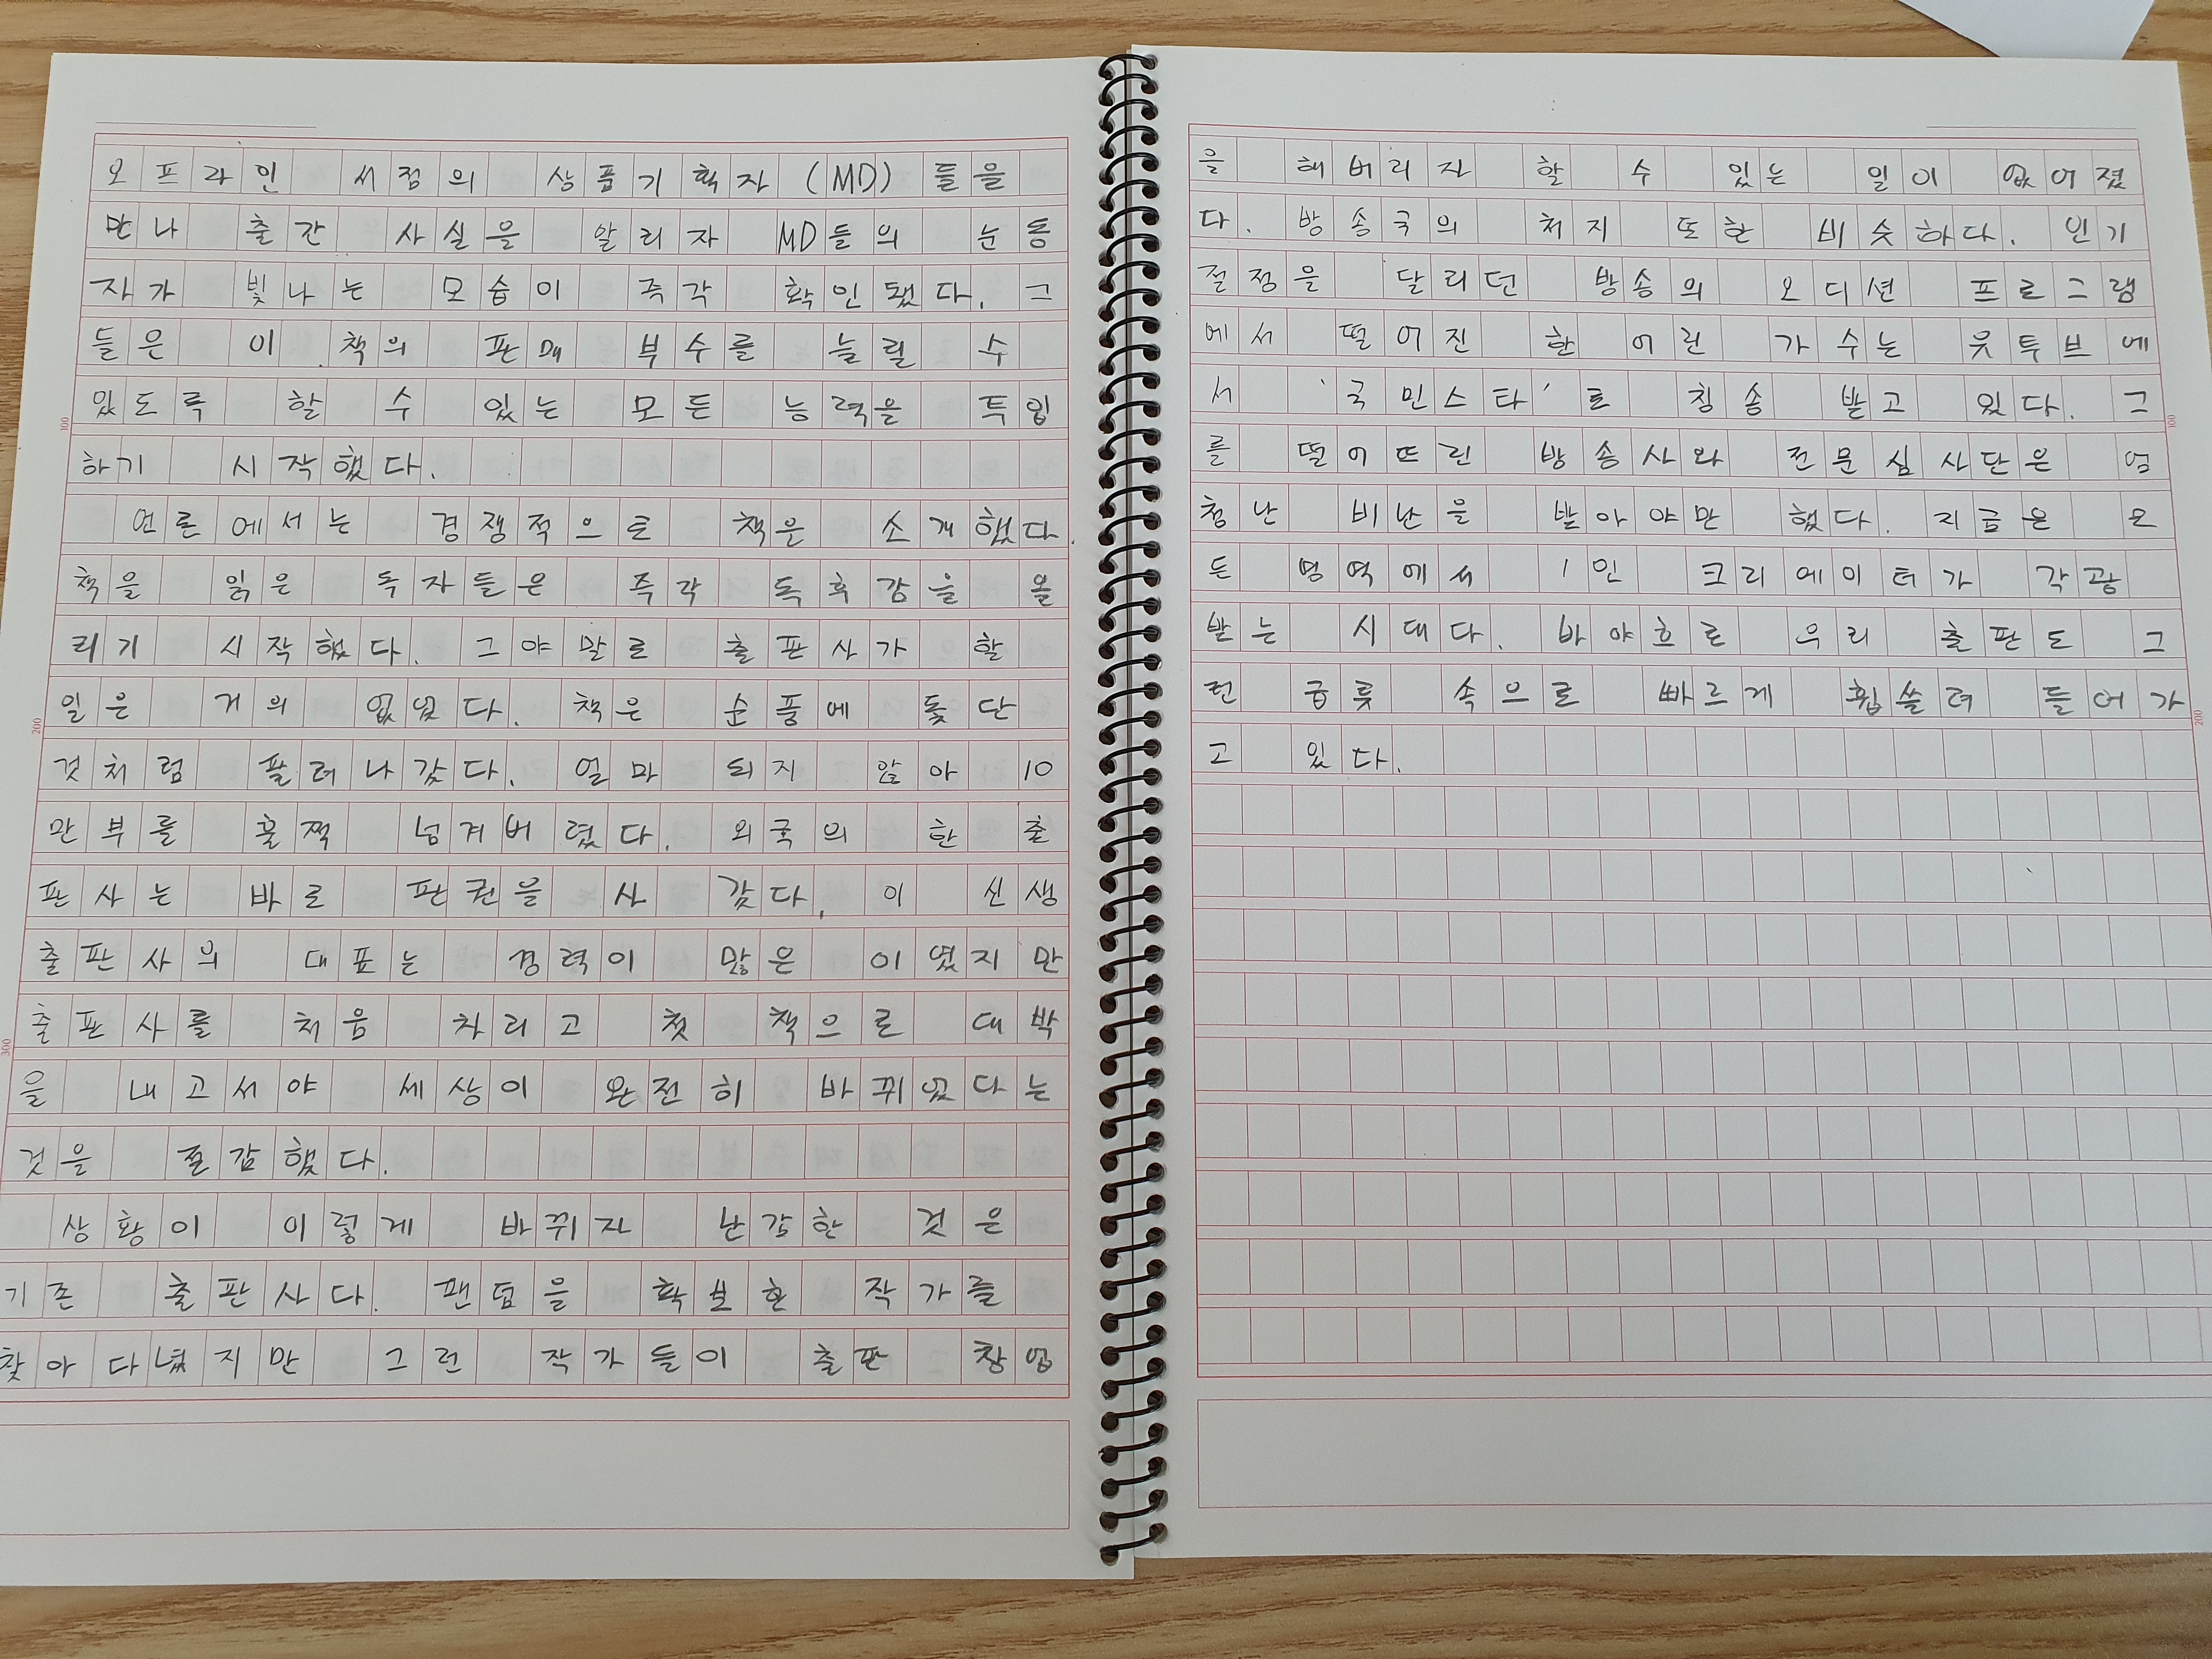 오프라인 서점의 상품기획자(MD)들을
만나 출간 사실을 알리자 MD들의 눈동
자가 빛나는 모습이 즉각 확인됐다. 그
들은 이 책의 판매 부수를 늘릴 수
있도록 할 수 있는 모든 능력을 투입
하기 시작했다.
언론에서는 경쟁적으로 책은 소개했다.
책을 읽은 독자들은 즉각 독후감을 올
리기 시작했다. 그야말로 출판사가 할
일은 거의 없었다. 책은 순풍에 돛단
것처럼 풀려나갔다. 얼마 되지 않아 10
만부를 훌쩍 넘겨버렸다. 외국의 한 출
판사는 바로 판권을 사 갔다. 이 신생
출판사의 대표는 경력이 많은 이였지만
출판사를 처음 차리고 첫 책으로 대박
을 내고서야 세상이 완전히 바뀌었다는
것을 실감했다.
상황이 이렇게 바뀌자 난감한 것은
기존 출판사다. 팬덤을 확보한 작가를
찾아다녔지만 그런 작가들이 출판 창업
을 해버리자 할 수 있는 일이 없어졌
다. 방송국의 처지 또한 비슷하다. 인기
절정을 달리던 방송의 오디션 프로그램
에서 떨어진 한 어린 가수는 유투브에
서 '국민스타'로 칭송 받고 있다. 그
를 떨어뜨린 방송사와 전문심사단은 엄
청난 비난을 받아야만 했다. 지금은 모
든 영역에서 1인 크리에이터가 각광
받는 시대다. 바야흐로 우리 출판도 그
런 급류 속으로 빠르게 휩쓸려 들어가
고 있다.